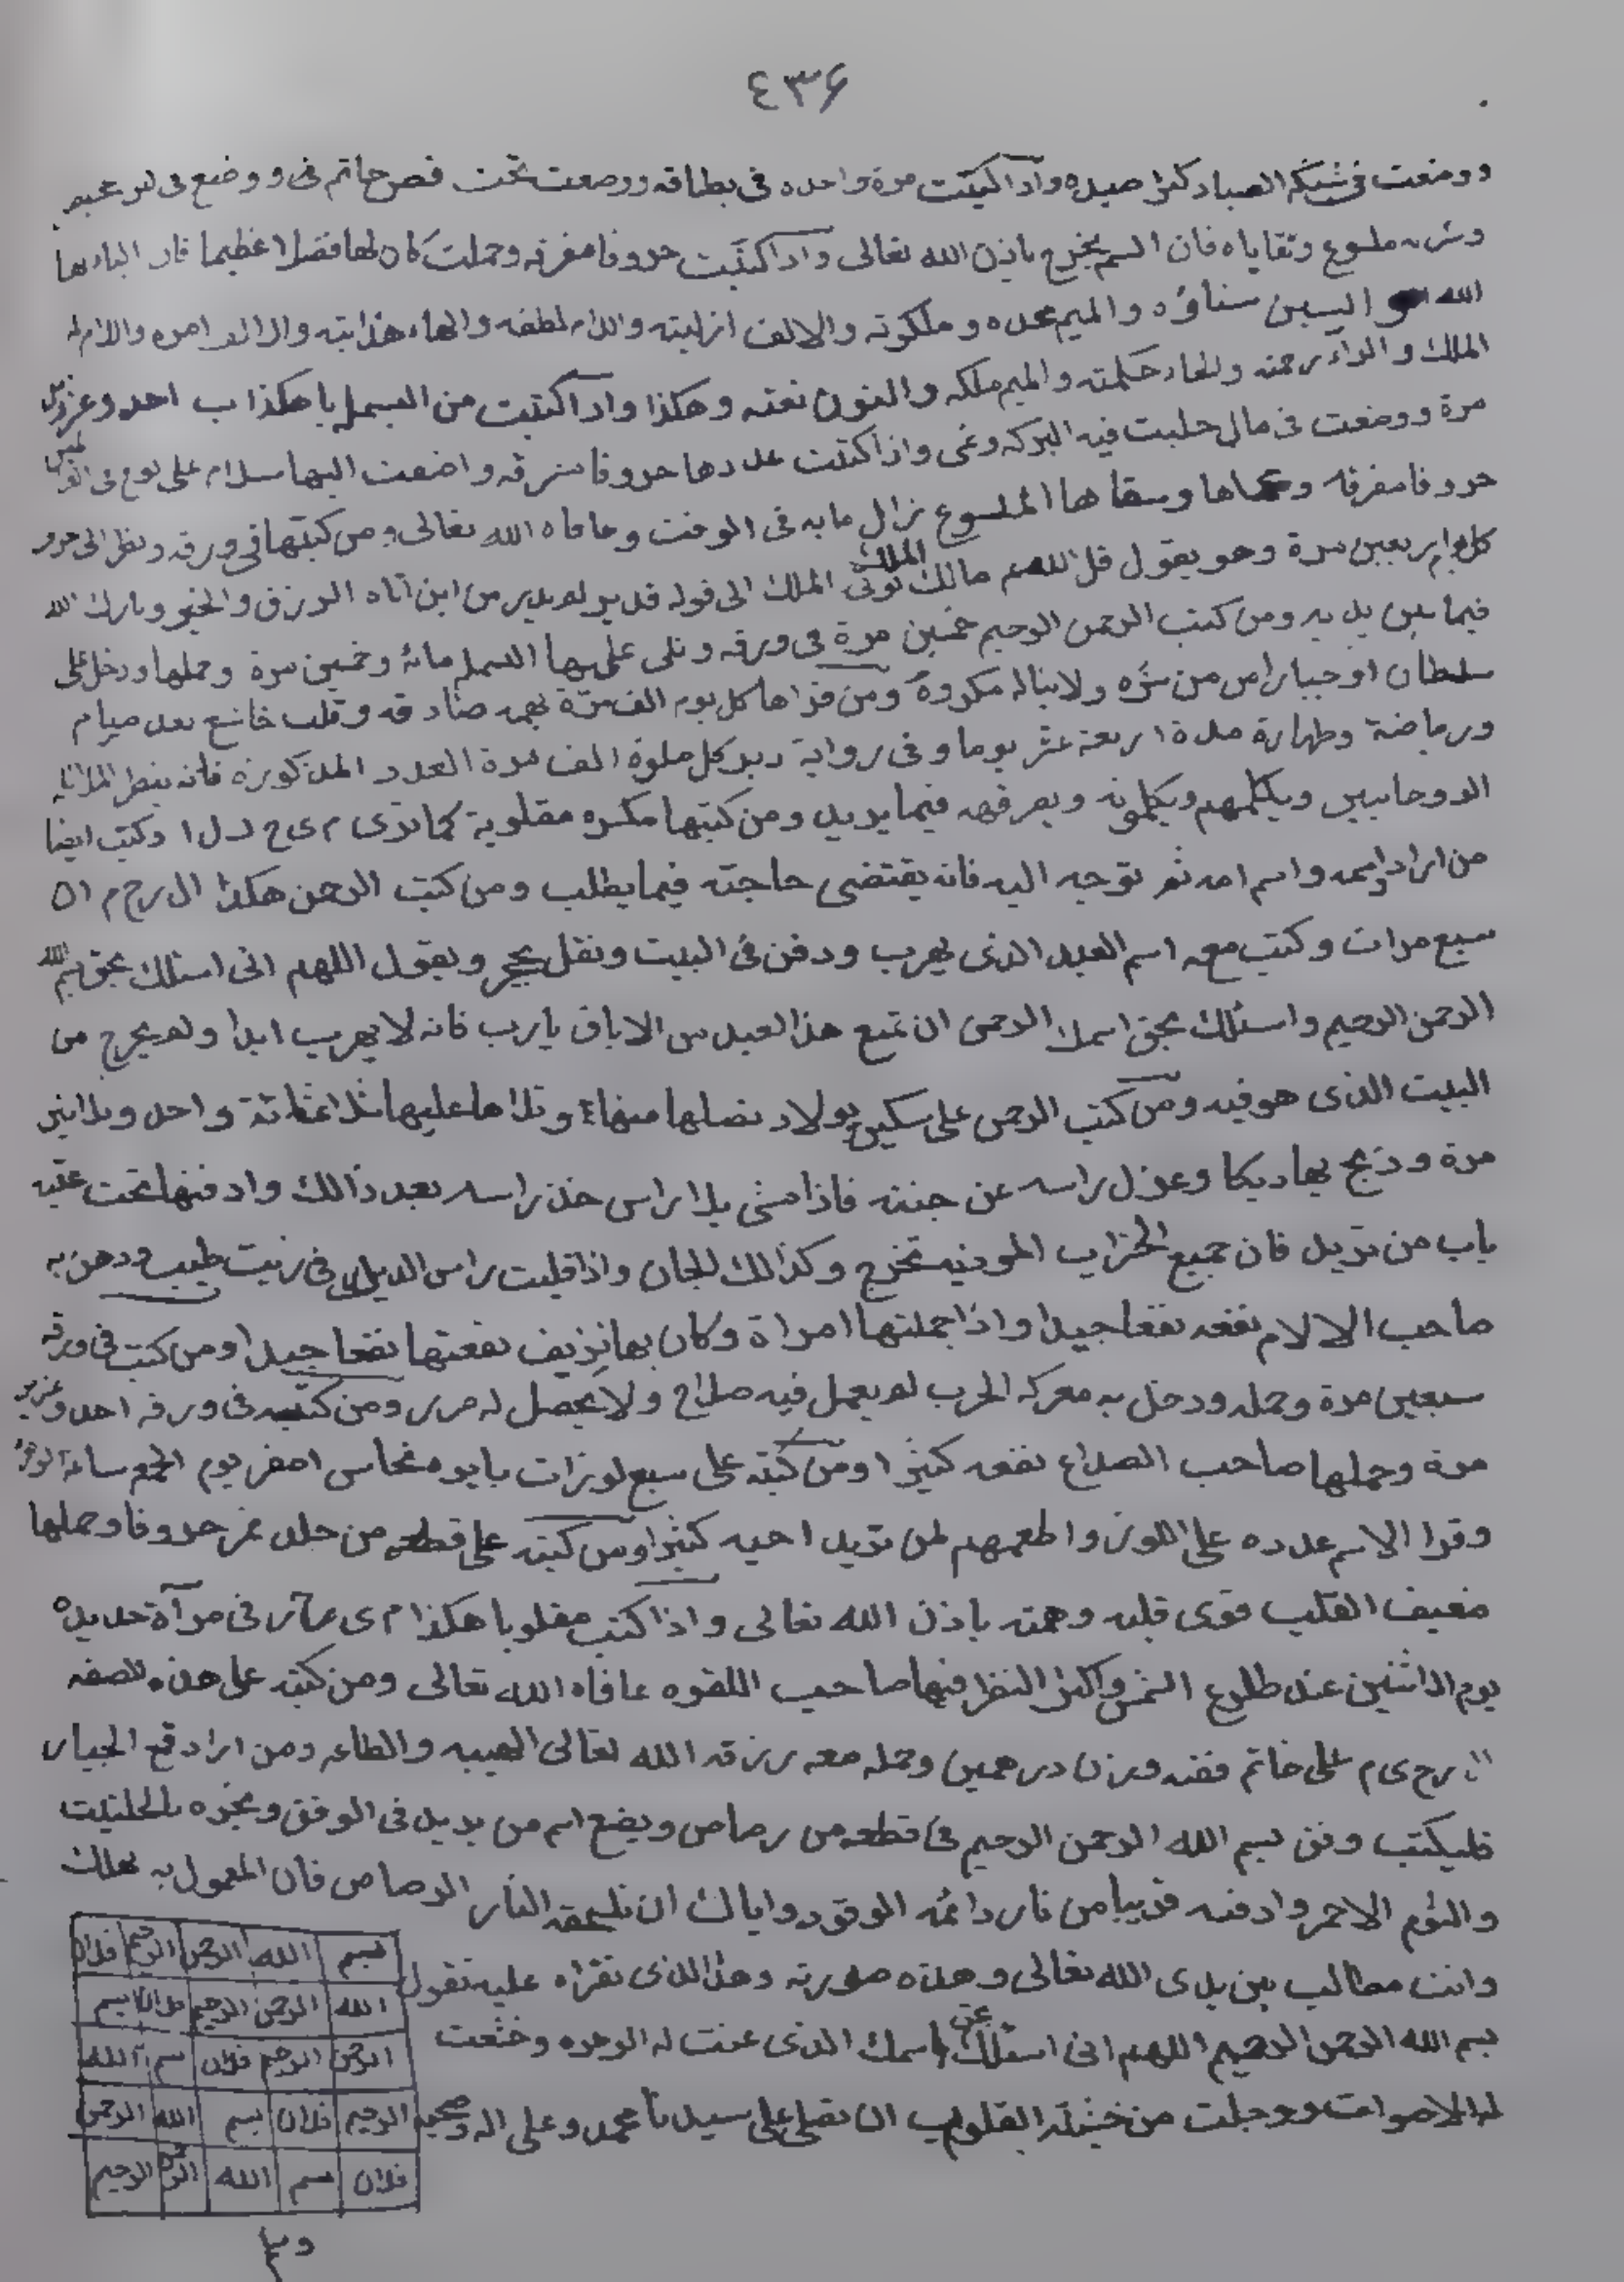 ٤٣٦
ووضعت فى شبكة الصياد كثر صيده واذا كتبت مرة واحده فى بطاقه ووضعت تحت فص خاتم فى ووضع فى
وشربه ملسوع وتقاياه فان السم يخرج باذن الله تعالى واذا كتبت حروفا مفرقه وحملت كان لها فضلا عظيما فان الباء بها
الله السين سناؤه والميم مجده وملكوته والالف ازليته واللام لطفه والهاء هدايته والالف امره واللام له
الملك والراء رحمته والحاء حكمته والميم ملكه والنون نعته وهكذا واذا كتبت من البسمله با هكذا ب احد وعزين
مرة ووضعت فى مال حلبت فيه البركه ونمى واذا كتبت عددها حروفا مفرقه واضعت اليها سلام على نوح فى
حروفا مفرقه ومحاها وسقاها الملسوع زال ما به فى الوقت وعافاه الله تعالى ومن كتبها فى ورقه ونظر الى
كل يوم اربعين مرة وهو يقول قل اللهم مالك الملك توتى الملك الى قوله قدير لم يدير من اين اتاه الرزق والخير وبارك الله
فيما بين يديه ومن كتب الرحمن الرحيم خمسين مرة فى ورقه وتلى عليها البسمله مائة وخمسين مرة وحملها ودخل على
سلطان او جبار امن من شره ولا يناله مكروه ومن قراها كل يوم الف مرة بهمه صادقه وقلب خاشع بعد صيام
ورياضة وطهارة مدة اربعة عشر يوما وفى رواية دبر كل صلوة الف مرة العدد المذكورة فانه ينظر الملائكه
الروحانيين ويكلمهم ويكلمونه ويعرفهم فيما يريد ومن كتبها مكسره مقلوبة كما ترى م ى ح ر ل ا وكتب ايضا
من اراد اسمه واسم امه ثم توجه اليه فانه يقتضى حاجته فيما يطلب ومن كتب الرحمن هكذا ال ر ح م ا ن
سبع مرات وكتب معه اسم العبد الذى يهرب ودفن فى البيت وثقل بحجر ويقول اللهم انى اسئلك بحق بسم الله
الرحمن الرحيم واسئلك بحق اسمك الرحمن ان تمنع هذا العبد من الاباق يارب فانه لا يهرب ابدا ولم يخرج من
البيت الذى هو فيه ومن كتب الرحمن على سكين بولاد نصلها منها وتلاها عليها ثلاثمائة واحد وثلاثين
مرة وذبح بها ديكا وعزل راسه عن جثته فاذا مشى بلا راس خذ راسه بعد ذالك وادفنها تحت عتبه
باب من تريد فان جميع الخراب الموذيه تخرج وكذالك للجان واذا قليت راس الديك فى زيت طيب ودهن به
صاحب الالام نفعه نفعا جيدا واذا حملتها امراة وكان بها نزيف نفعتها نفعا جيدا ومن كتب فى ورقه
سبعين مرة وحمله ودخل به معركه الحرب لم يعمل فيه سلاح ولا يحصل له ضرر ومن كتبه فى ورقه احد وعزين
مرة وحملها صاحب الصداع نفعه كثيرا ومن كتبه على سبع لوزات بابره نحاس اصفر يوم الجمعه ساعة
وقرا الاسم عدده على اللوز واطعمهم لمن تريد احبه كثيرا ومن كتبه على قطعه من جلد نمر حروفا وحملها
ضعيف القلب قوى قلبه وهمته باذن الله تعالى واذا كتب مقلوبا هكذا م ى ح ر فى مرآة حديده
يوم الاثنين عند طلوع الشمس واكثر النظر فيها صاحب اللقوه عافاه الله تعالى ومن كتبه على هذه الصفه
ال ر ح ى م على خاتم فضه وزن درهمين وحمله معه رزقه الله تعالى الهيبه والطاعه ومن اراد قمع الجبار
فليكتب وفق بسم الله الرحمن الرحيم فى قطعه من رصاص ويضع اسم من يريد فى الوفق ويبخره بالحلتيت
والثوم الاحمر وادفنه قريبا من نار دائمه الوقود واياك ان تلحقه النار الرصاص فان المعمول به يهلك
وانت مطالب بين يدى الله تعالى وهذه صورته وهذا الذى تقراه عليه تقول
بسم الله الرحمن الرحيم اللهم انى اسئلك باسمك الذى عنت له الوجوه وخشعت
له الاصوات ووجلت من خشيته القلوب ان تصلى على سيدنا محمد وعلى اله وصحبه
بسم الله الرحمن الرحيم فلان
الله الرحمن الرحيم فلان بسم
الرحمن الرحيم فلان بسم الله
الرحيم فلان بسم الله الرحمن
فلان بسم الله الرحمن الرحيم